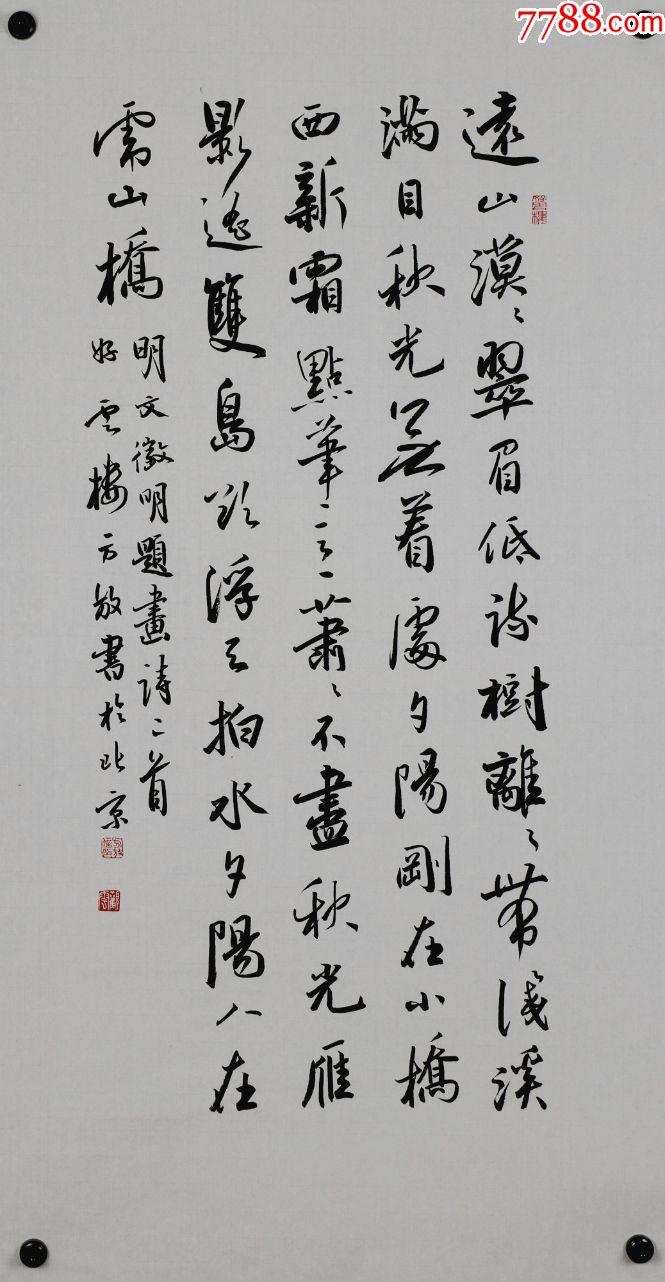 7788.com
遠山漠〻翠眉低疏樹離〻帶淺溪
滿目秋光無着處夕陽剛在小橋
西新霜點筆意蕭〻不盡秋光雁
影遙雙島欲浮天拍水夕陽人在
虎山橋
明文徵明題畫詩二首
好雲樓方放書於北京